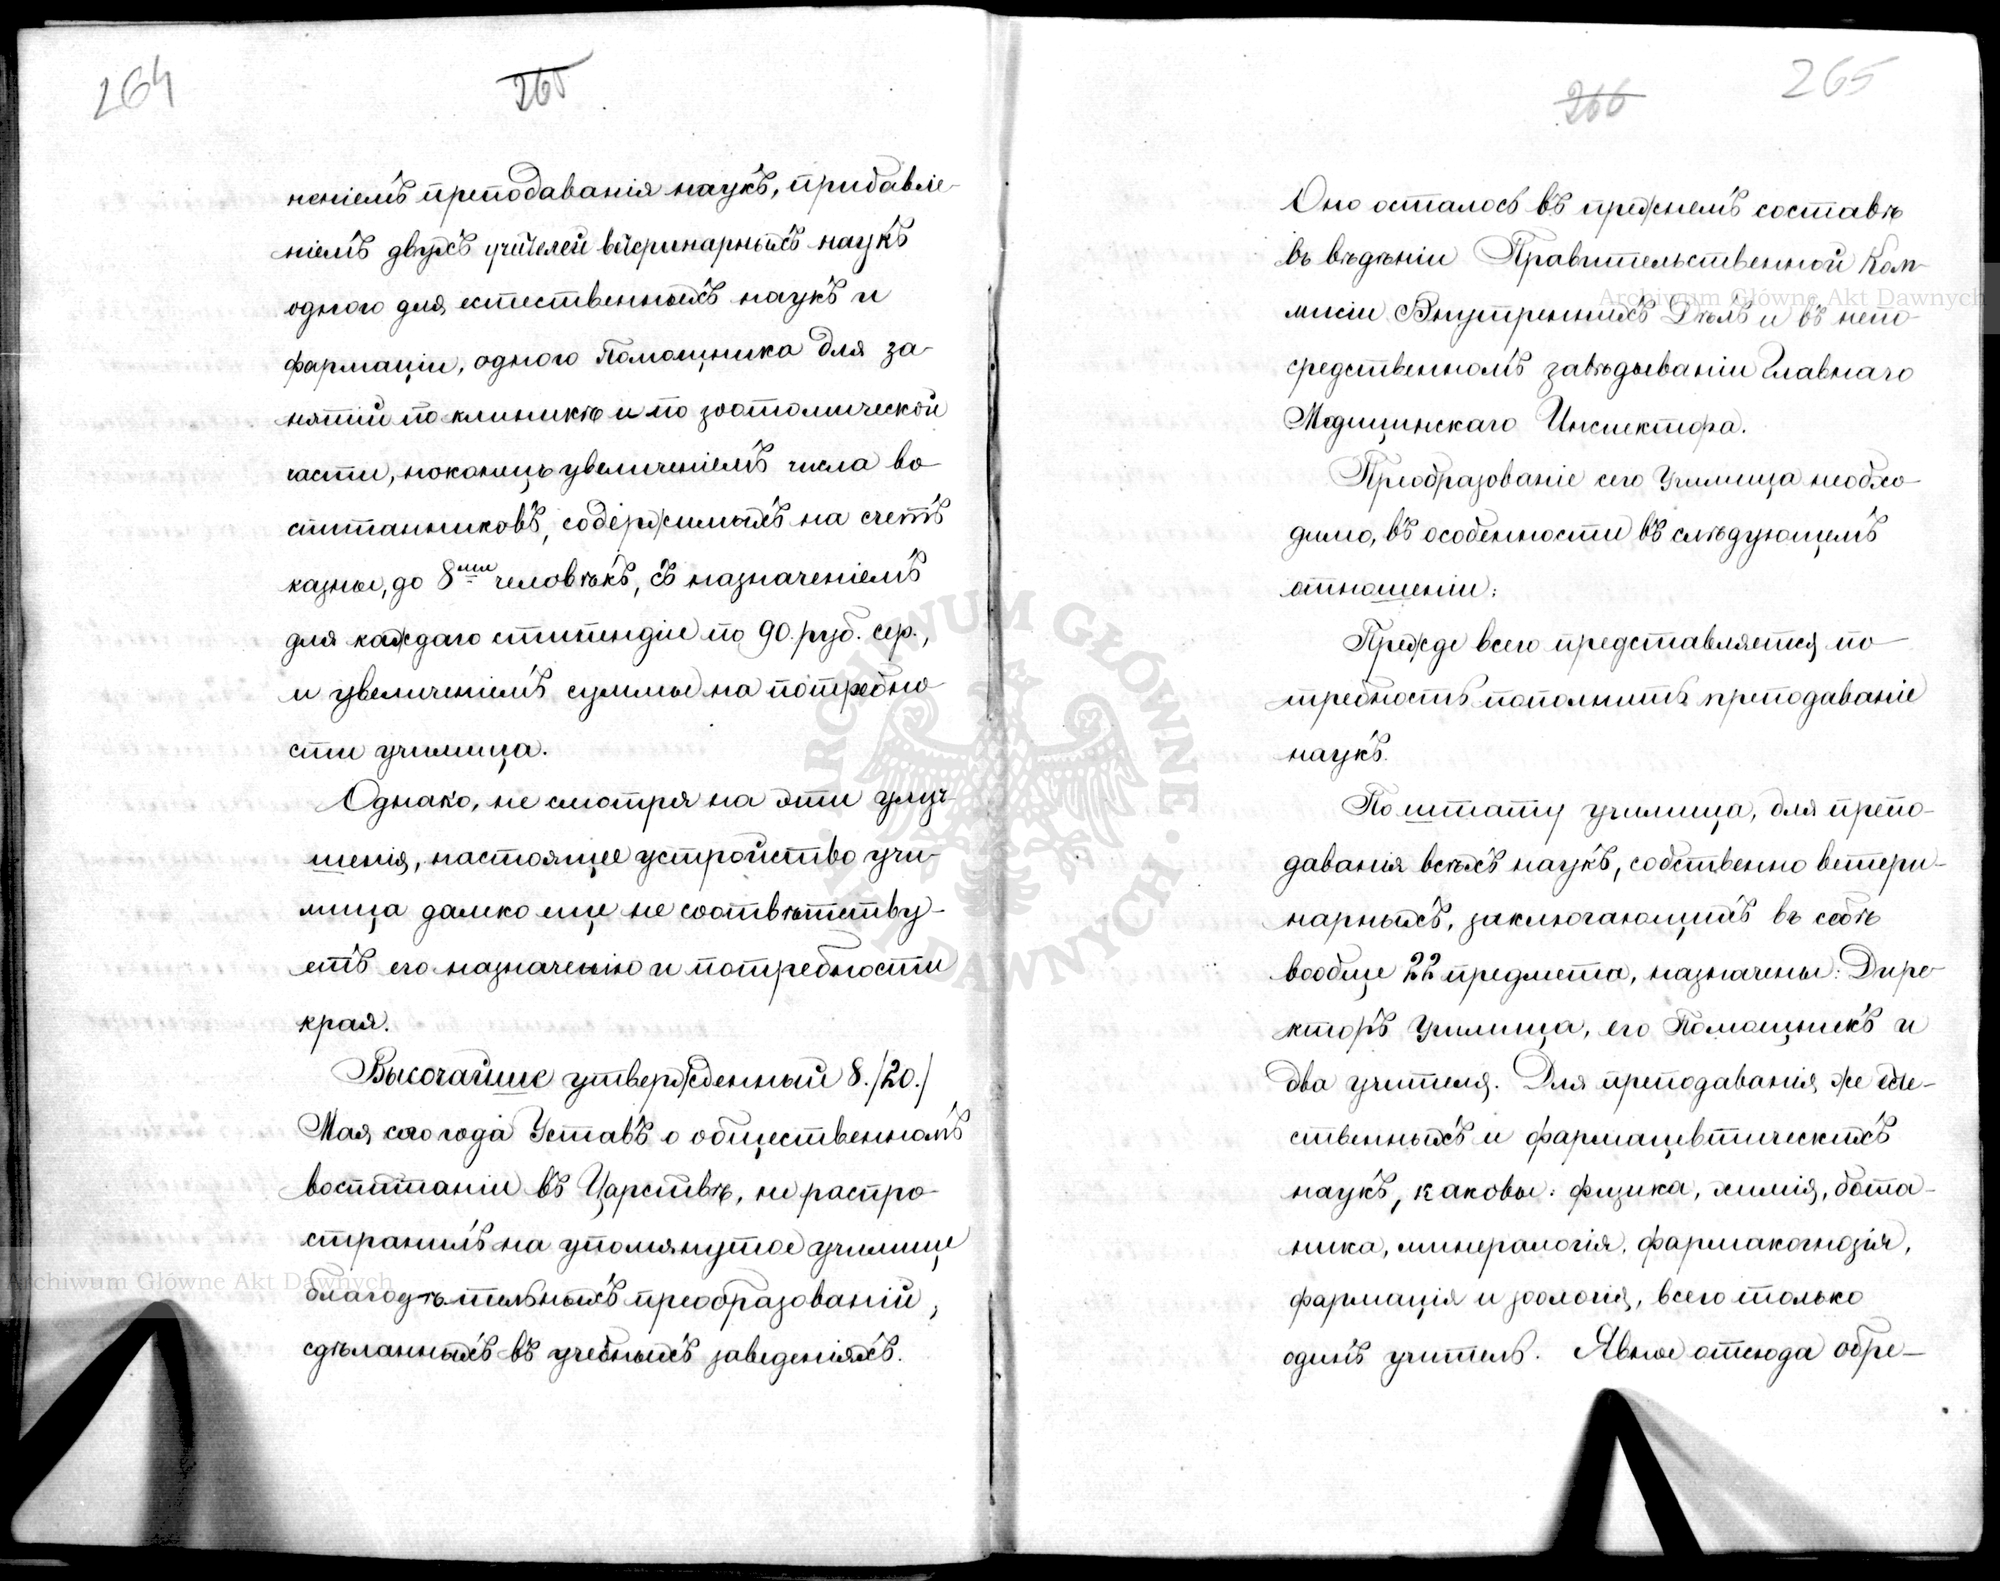 264
265
неніемъ преподаванія наукъ, прибавле-
ніемъ двухъ учителей ветеринарныхъ наукъ
одного для естественныхъ наукъ и
фармаціи, одного Помощника для за-
нятій по клиникѣ и по зоотомической
части, наконецъ увеличеніемъ числа во-
спитанниковъ, содержимыхъ на счетъ
казны, до 8ми человѣкъ, съ назначеніемъ
для каждаго стипендіи по 90. руб. сер.,
и увеличеніемъ суммы на потребно-
сти училища.
Однако, не смотря на эти улуч-
шенія, настоящее устройство учи-
лища далеко еще не соотвѣтству-
етъ его назначенію и потребности
края.
Высочайше утвержденный 8./20./
Мая сего года Уставъ о общественномъ
воспитаніи въ Царствѣ, не распро-
странилъ на упомянутое училище
благодѣтельныхъ преобразованій,
сдѣланныхъ въ учебныхъ заведеніяхъ.
265
266
Оно осталось въ прежнемъ составѣ
въ вѣдѣніи Правительственной Ком-
мисіи Внутреннихъ Дѣлъ и въ непо-
средственномъ завѣдываніи Главнаго
Медицинскаго Инспектора.
Преобразованіе сего Училища необхо-
димо, въ особенности въ слѣдующемъ
отношеніи:
Прежде всего представляется по-
требность пополнить преподаваніе
наукъ.
По штату училища, для препо-
даванія всѣхъ наукъ, собственно ветери-
нарныхъ, заключающихъ въ себѣ
вообще 22 предмета, назначены: Дире-
кторъ Училища, его Помощникъ и
два учителя. Для преподаванія же есте-
ственныхъ и фармацевтическихъ
наукъ, каковы: физика, химія, бота-
ника, минералогія, фармакогнозія,
фармація и зоологія, всего только
одинъ учитель. Явное отсюда обре-
ARCHIWUM GŁÓWNE AKT DAWNYCH
Archiwum Główne Akt Dawnych
Archiwum Główne Akt Dawnych